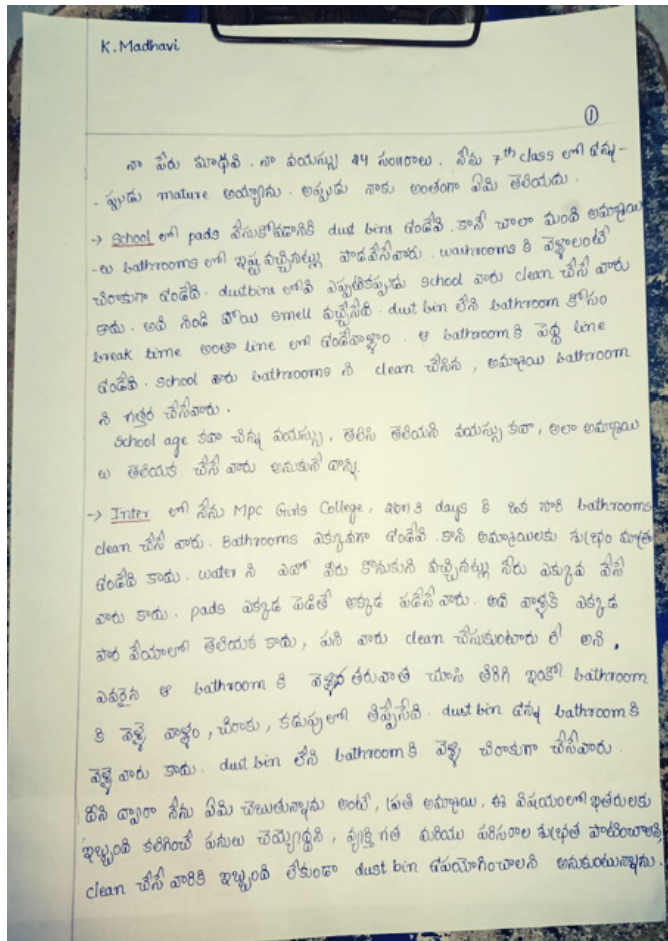 K. Madhavi
①
నా పేరు మాధవి. నా వయస్సు 24 సం॥రాలు. నేను 7th class లో ఉన్న-
-ప్పుడు mature అయ్యాను. అప్పుడు నాకు అంతగా ఏమి తెలియదు.
→ School లో pads వేసుకోవడానికి dust bins ఉండేవి. కానీ చాలా మంది అమ్మాయి
-లు bathrooms లో ఇష్టం వచ్చినట్లు పాడవేసేవారు. washrooms కి వెళ్లాలంటే
చిరాకుగా ఉండేది. dustbins లోవి ఎప్పటికప్పుడు school వారు clean చేసే వారు
కాదు. అవి నిండి పోయి smell వచ్చేసేది. dust bin లేని bathroom కోసం
break time అంతా line లో ఉండేవాళ్లం. ఆ bathroom కి పెద్ద line
ఉండేది. school వారు bathrooms ని clean చేసిన, అమ్మాయి bathroom
ని గత్తర చేసేవారు.
School age కదా చిన్న వయస్సు, తెలిసి తెలియని వయస్సు కదా, అలా అమ్మాయి
లు తెలియక చేసే వారు అనుకునే దాన్ని.
→ Inter లో నేను Mpc Girls College, 2 or 3 days కి ఒక సారి bathrooms
clean చేసే వారు. Bathrooms ఎక్కువగా ఉండేవి. కాని అమ్మాయిలకు శుభ్రం మాత్రం
ఉండేది కాదు. water ని ఎదో వీరు కొనుకుని వచ్చినట్లు నీరు ఎక్కువ వేసే
వారు కాదు. pads ఎక్కడ పడితే అక్కడ పడేసే వారు. అది వాళ్ళకి ఎక్కడ
పార వేయాలో తెలియక కాదు, పని వారు clean చేసుకుంటారు లే అని.
ఎవరైన ఆ bathroom కి వెళ్ళిన తరువాత చూసి తిరిగి ఇంకో bathroom
కి వెళ్ళే వాళ్లం, చిరాకు, కడుపులో తిప్పేసేది. dust bin ఉన్న bathroom కి
వెళ్ళే వారు కాదు. dust bin లేని bathroom కి వెళ్ళి చిరాకుగా చేసేవారు.
దీని ద్వారా నేను ఏమి చెబుతున్నాను అంటే, ప్రతి అమ్మాయి. ఈ విషయంలో ఇతరులకు
ఇబ్బంది కలిగించే పనులు చెయ్యొద్దని, వ్యక్తి గత మరియు పరిసరాల శుభ్రత పాటించాలని,
clean చేసే వారికి ఇబ్బంది లేకుండా dust bin ఉపయోగించాలని అనుకుంటున్నాను.